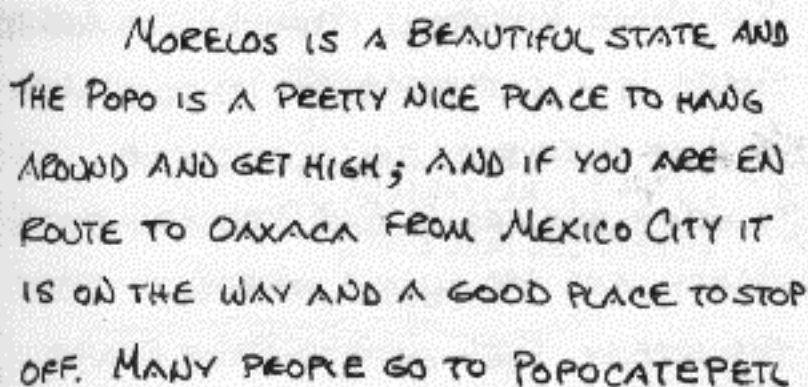 MORELOS IS A BEAUTIFUL STATE AND
THE POPO IS A PRETTY NICE PLACE TO HANG
AROUND AND GET HIGH; AND IF YOU ARE EN
ROUTE TO OAXACA FROM MEXICO CITY IT
IS ON THE WAY AND A GOOD PLACE TO STOP
OFF. MANY PEOPLE GO TO POPOCATEPETL